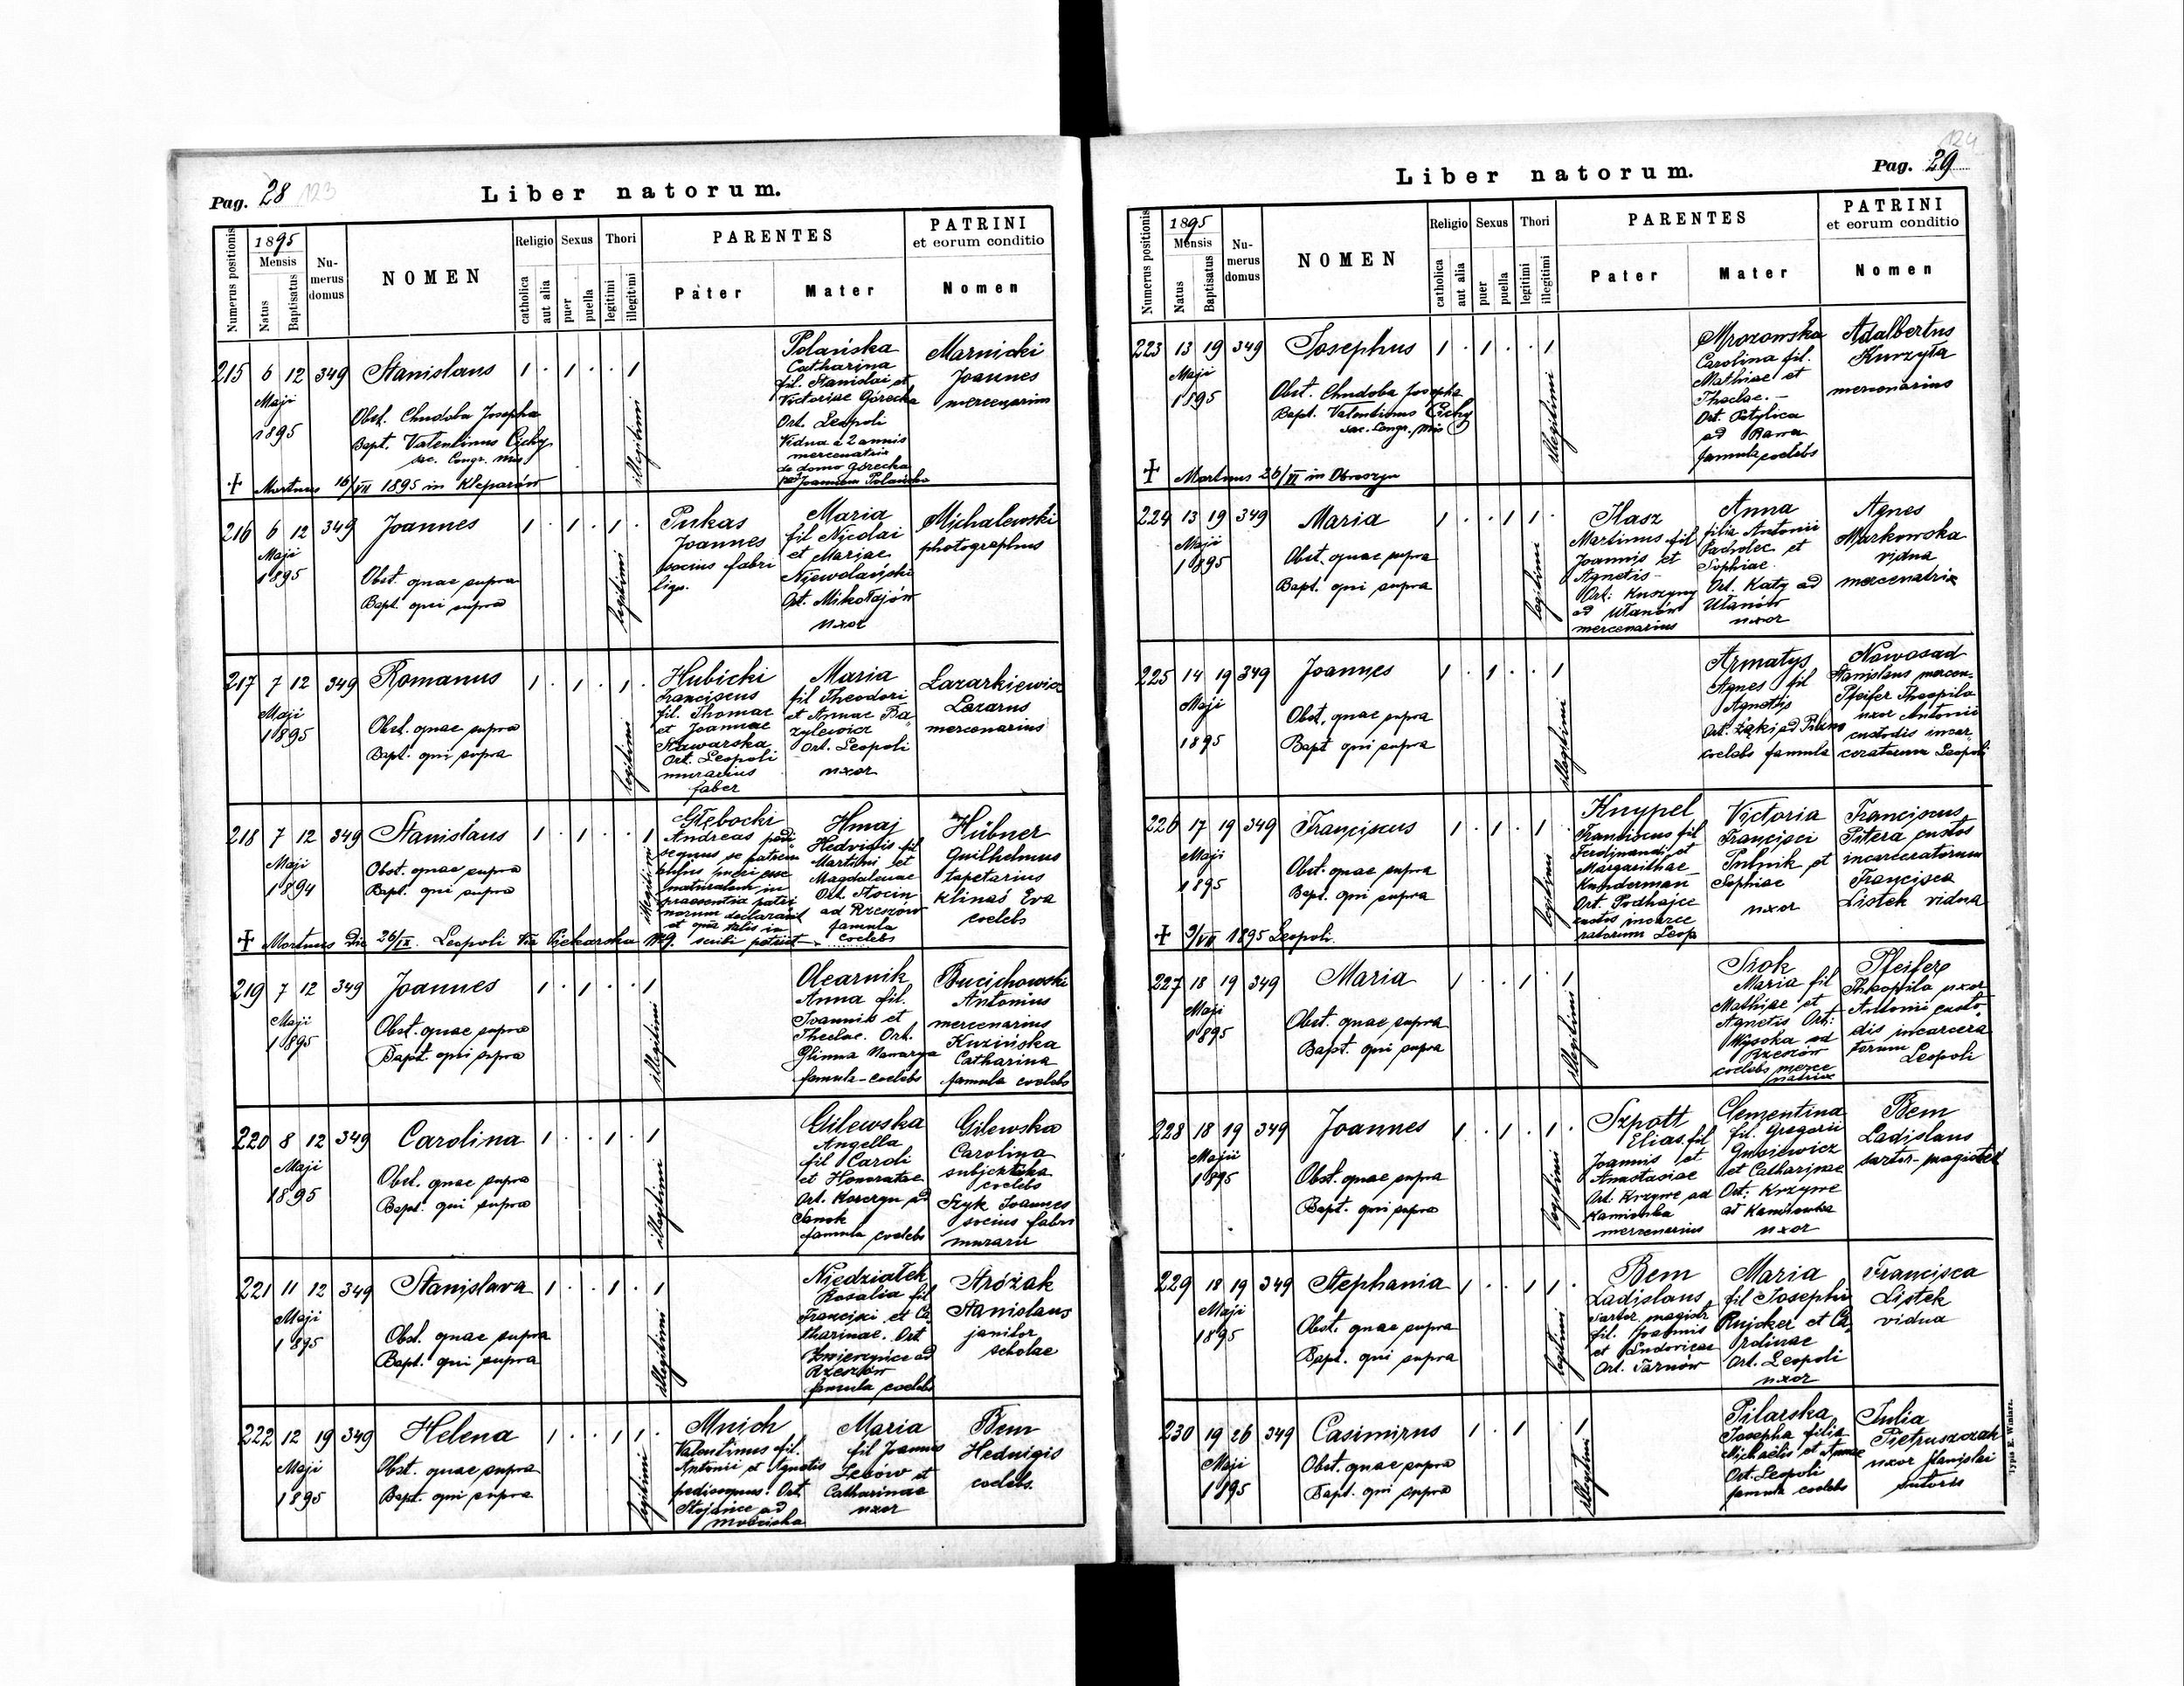 Pag. 28 123
Liber natorum.
Numerus positionis
1895
Mensis
Natus
Baptisatus
Nu-
merus
domus
NOMEN
Religio
catholica
aut alia
Sexus
puer
puella
Thori
legitimi
illegitimi
PARENTES
Pater
Mater
PATRINI
et eorum conditio
Nomen
215 6 12 349 Stanislaus 1 . 1 . . 1
Maji
1895
Obst. Chudoba Josepha
Bapt. Valentinus Cichy
sac. Congr. Mis
illegitimi
Polańska
Catharina
fil. Stanislai et
Victoriae Górecka
Ort. Leopoli
Vidua a 2 annis
mercenatrix
de domo Górecka
Joannem Polański
Marnicki
Joannes
mercenarius
+ Mortuus 16/VII 1895 in Kleparów
216 6 12 349 Joannes 1 . 1 . 1 .
Maji
1895
Obst. quae supra
Bapt. qui supra
legitimi
Pukas
Joannes
socius fabri
lign.
Maria
fil Nicolai
et Mariae
Niewolański
Ort. Mikołajów
uxor
Michalewski
photographus
217 7 12 349 Romanus 1 . 1 . 1 .
Maji
1895
Obst. quae supra
Bapt. qui supra
legitimi
Hubicki
Franciscus
fil. Thomae
et Joannae
Sławarska
Ort. Leopoli
murarius
faber
Maria
fil Theodori
et Annae Ba
zylewicz
Ort. Leopoli
uxor
Łazarkiewicz
Lazarus
mercenarius
218 7 12 349 Stanislaus 1 . 1 . . 1
Maji
1894
Obst. quae supra
Bapt. qui supra
illegitimi
Głębocki
Andreas pedi
sequus se patrem
hujus pueri esse
naturalem in
praesentia patri
norum declaravit
et qua talis in
scribi petiit
Hmaj
Hedvigis fil
Martini et
Magdalenae
Ort. Stocin
ad Rzeszów
famula
coelebs
Hübner
Guilhelmus
tapetarius
Klinaś Eva
coelebs
+ Mortuus die 26/IX. Leopoli Via Piekarska
219 7 12 349 Joannes 1 . 1 . . 1
Maji
1895
Obst. quae supra
Bapt. qui supra
illegitimi
Olearnik
Anna fil.
Joannis et
Theclae. Ort.
Glinna Nawarya
famula-coelebs
Bucichowski
Antonius
mercenarius
Kuzińska
Catharina
famula coelebs
220 8 12 349 Carolina 1 . . 1 . 1
Maji
1895
Obst. quae supra
Bapt. qui supra
illegitimi
Gilewska
Angella
fil Caroli
et Honoratae
Ort. ad
Sanok
famula coelebs
Gilewska
Carolina
coelebs
Szyk Joannes
socius fabri
murarii
221 11 12 349 Stanislava 1 . . 1 . 1
Maji
1895
Obst. quae supra
Bapt. qui supra
illegitimi
Niedziałek
Rosalia fil
Francisci et Ca
tharinae. Ort
Zwierzyńce ad
Rzeszów
famula coelebs
Stróżak
Stanislaus
janitor
scholae
222 12 19 349 Helena 1 . . 1 1 .
Maji
1895
Obst. quae supra
Bapt. qui supra
legitimi
Mnich
Valentinus fil.
Antonii et Agnetis
pedisequus. Ort
Stojańce ad
Mościska
Maria
fil Joannis
Lesów et
Catharinae
uxor
Bem
Hedvigis
coelebs.
124
Pag. 29
Liber natorum.
Numerus positionis
1895
Mensis
Natus
Baptisatus
Nu-
merus
domus
NOMEN
Religio
catholica
aut alia
Sexus
puer
puella
Thori
legitimi
illegitimi
PARENTES
Pater
Mater
PATRINI
et eorum conditio
Nomen
223 13 19 349 Josephus 1 . 1 . . 1
Maji
1895
Obst. Chudoba Josepha
Bapt. Valentinus Cichy
sac. Congr. Mis
illegitimi
Mrozowska
Carolina fil.
Mathiae et
Theclae. -
Ort. Potylica
ad Rawa
famula coelebs
Adalbertus
Kurzyła
mercenarius
+ Mortuus 26/VI in Obroszyn
224 13 19 349 Maria 1 . . 1 1 .
Maji
1895
Obst. quae supra
Bapt. qui supra
legitimi
Ilasz
Martinus fil
Joannis et
Agnetis
Ort: Kuszyny
ad Ułanów
mercenarius
Anna
filia Antonii
Pacholec et
Sophiae
Ort. Katy ad
Ułanów
uxor
Agnes
Markowska
vidua
mercenatrix
225 14 19 349 Joannes 1 . 1 . . 1
Maji
1895
Obst. quae supra
Bapt qui supra
illegitimi
Armatys
Agnes fil
Agnetis
Ort. Łąki ad Pilzno
coelebs famula
Nowosad
Stanislaus mercen-
Pfeifer Theophila
uxor Antonii
custodis incar-
ceratorum Leopoli
226 17 19 349 Franciscus 1 . 1 . 1 .
Maji
1895
Obst. quae supra
Bapt. qui supra
legitimi
Knypel
Franciscus fil
Ferdinandi et
Margarithae
Kunderman
Ort. Podhajce
custos incarce
ratorum Leop
Victoria
Francisci
Putnik et
Sophiae
uxor
Franciscus
Pitera custos
incarceratorum
Francisca
Listek vidua
+ 9/VII 1895 Leopoli.
227 18 19 349 Maria 1 . . 1 . 1
Maji
1895
Obst. quae supra
Bapt. qui supra
illegitimi
Srok
Maria fil
Mathiae et
Agnetis Ort:
Wysoka ad
Rzeszów
coelebs merce
natrix
Pfeifer
Theophila uxor
Antonii custo-
dis incarcera
torum
Leopoli
228 18 19 349 Joannes 1 . 1 . 1 .
Majii
1895
Obst. quae supra
Bapt. qui supra
legitimi
Szpott
Elias fil
Joannis et
Anastasiae
Ort: Krzywe ad
Kamionka
mercenarius
Clementina
fil. Gregorii
Gusiewicz
et Catharinae
Ort: Krzywe
ad Kamionka
uxor
Bem
Ladislaus
sartor-magister
229 18 19 349 Stephania 1 . . 1 1 .
Maji
1895
Obst. quae supra
Bapt. qui supra
legitimi
Bem
Ladislaus
Sartor magistr
fil. Joannis
et Ludovicae
Ort. Tarnów
Maria
fil Josephi
Rujcker et Ca
rolinae
Ort. Leopoli
uxor
Francisca
Listek
vidua
230 19 26 349 Casimirus 1 . 1 . 1
Maji
1895
Obst. quae supra
Bapt. qui supra
illegitimi
Pilarska
Josepha filia
Michaëlis et Annae
Ort. Leopoli
famula coelebs
Julia
Pietruszczak
uxor Stanislai
sutoris
Typis E. Winiarz.